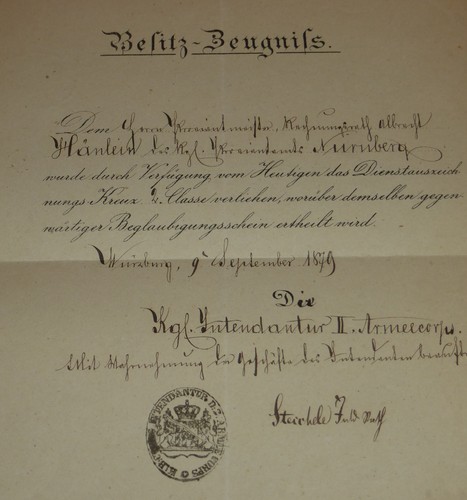 Besitz-Zeugniss.
Dem Herrn Proviantmeister, Rechnungsrath Albrecht
Hänlein des Kgl. Proviantamts Nürnberg
wurde durch Verfügung vom Heutigen das Dienstauszeich
nungs Kreuz Classe verliehen, worüber demselben gegen
wärtiger Beglaubigungsschein ertheilt wird.
Würzburg, 9. September 1879
Die
Kgl. Intendantur II. Armeecorps.
Mit Wahrnehmung der Geschäfte des Intendanten beauftr
Int. Rath
INTENDANTUR D. 2. ARMEE CORPS